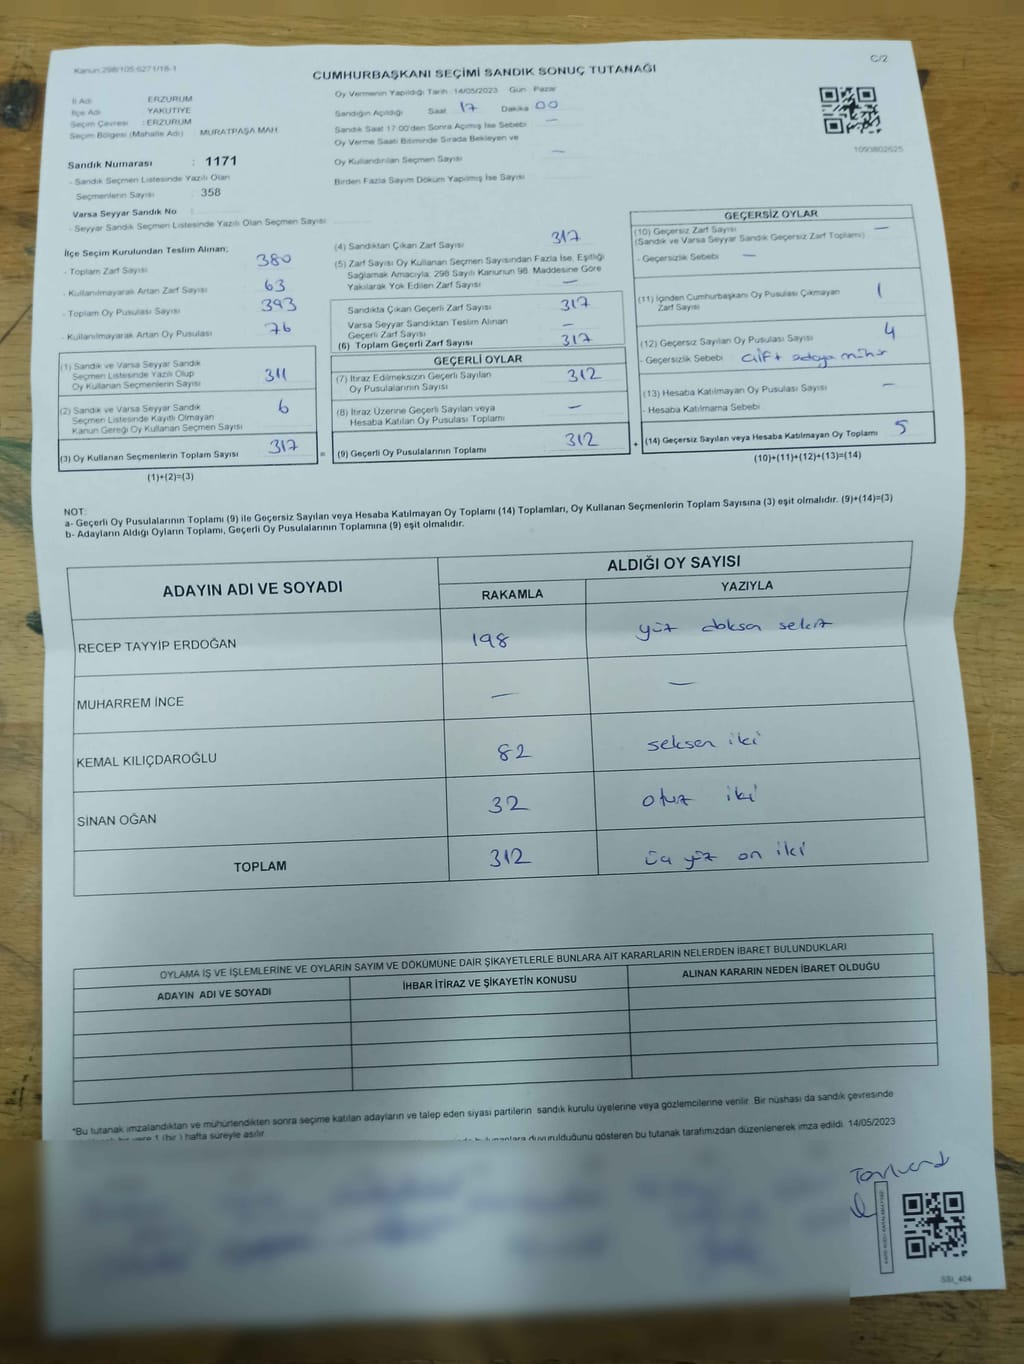 Kanun:298/105:6271/18-1
C/2
CUMHURBAŞKANI SEÇİMİ SANDIK SONUÇ TUTANAĞI
İl Adı : ERZURUM
İlçe Adı : YAKUTİYE
Seçim Çevresi : ERZURUM
Seçim Bölgesi (Mahalle Adı) MURATPAŞA MAH.
Sandık Numarası : 1171
- Sandık Seçmen Listesinde Yazılı Olan
Seçmenlerin Sayısı : 358
Varsa Seyyar Sandık No :
- Seyyar Sandık Seçmen Listesinde Yazılı Olan Seçmen Sayısı
Oy Vermenin Yapıldığı Tarih :14/05/2023 Gün : Pazar
Sandığın Açıldığı Saat 17 Dakika 00
Sandık Saat 17:00'den Sonra Açılmış İse Sebebi : —
Oy Verme Saati Bitiminde Sırada Bekleyen ve
Oy Kullandırılan Seçmen Sayısı —
Birden Fazla Sayım Döküm Yapılmış İse Sayısı
1093802625
İlçe Seçim Kurulundan Teslim Alınan;
- Toplam Zarf Sayısı 380
- Kullanılmayarak Artan Zarf Sayısı 63
- Toplam Oy Pusulası Sayısı 393
- Kullanılmayarak Artan Oy Pusulası 76
(1) Sandık ve Varsa Seyyar Sandık
Seçmen Listesinde Yazılı Olup
Oy Kullanan Seçmenlerin Sayısı 311
(2) Sandık ve Varsa Seyyar Sandık
Seçmen Listesinde Kayıtlı Olmayan
Kanun Gereği Oy Kullanan Seçmen Sayısı 6
(3) Oy Kullanan Seçmenlerin Toplam Sayısı 317 =
(1)+(2)=(3)
(4) Sandıktan Çıkan Zarf Sayısı 317
(5) Zarf Sayısı Oy Kullanan Seçmen Sayısından Fazla İse, Eşitliği
Sağlamak Amacıyla; 298 Sayılı Kanunun 98. Maddesine Göre
Yakılarak Yok Edilen Zarf Sayısı —
Sandıkta Çıkan Geçerli Zarf Sayısı 317
Varsa Seyyar Sandıktan Teslim Alınan
Geçerli Zarf Sayısı —
(6) Toplam Geçerli Zarf Sayısı 317
GEÇERLİ OYLAR
(7) İtiraz Edilmeksizin Geçerli Sayılan
Oy Pusulalarının Sayısı 312
(8) İtiraz Üzerine Geçerli Sayılan veya
Hesaba Katılan Oy Pusulası Toplamı —
(9) Geçerli Oy Pusulalarının Toplamı 312 +
GEÇERSİZ OYLAR
(10) Geçersiz Zarf Sayısı —
(Sandık ve Varsa Seyyar Sandık Geçersiz Zarf Toplamı)
- Geçersizlik Sebebi —
(11) İçinden Cumhurbaşkanı Oy Pusulası Çıkmayan
Zarf Sayısı 1
(12) Geçersiz Sayılan Oy Pusulası Sayısı 4
- Geçersizlik Sebebi çift adaya mühür
(13) Hesaba Katılmayan Oy Pusulası Sayısı —
- Hesaba Katılmama Sebebi
(14) Geçersiz Sayılan veya Hesaba Katılmayan Oy Toplamı 5
(10)+(11)+(12)+(13)=(14)
NOT:
a- Geçerli Oy Pusulalarının Toplamı (9) ile Geçersiz Sayılan veya Hesaba Katılmayan Oy Toplamı (14) Toplamları, Oy Kullanan Seçmenlerin Toplam Sayısına (3) eşit olmalıdır. (9)+(14)=(3)
b- Adayların Aldığı Oyların Toplamı, Geçerli Oy Pusulalarının Toplamına (9) eşit olmalıdır.
ADAYIN ADI VE SOYADI
ALDIĞI OY SAYISI
RAKAMLA YAZIYLA
RECEP TAYYİP ERDOĞAN 198 yüz doksan sekiz
MUHARREM İNCE — —
KEMAL KILIÇDAROĞLU 82 seksen iki
SİNAN OĞAN 32 otuz iki
TOPLAM 312 üç yüz on iki
OYLAMA İŞ VE İŞLEMLERİNE VE OYLARIN SAYIM VE DÖKÜMÜNE DAİR ŞİKAYETLERLE BUNLARA AİT KARARLARIN NELERDEN İBARET BULUNDUKLARI
ADAYIN ADI VE SOYADI İHBAR İTİRAZ VE ŞİKAYETİN KONUSU ALINAN KARARIN NEDEN İBARET OLDUĞU
*Bu tutanak imzalandıktan ve mühürlendikten sonra seçime katılan adayların ve talep eden siyasi partilerin sandık kurulu üyelerine veya gözlemcilerine verilir. Bir nüshası da sandık çevresinde
yere 1 (bir) hafta süreyle asılır.
duyurulduğunu gösteren bu tutanak tarafımızdan düzenlenerek imza edildi. 14/05/2023
SSI_404